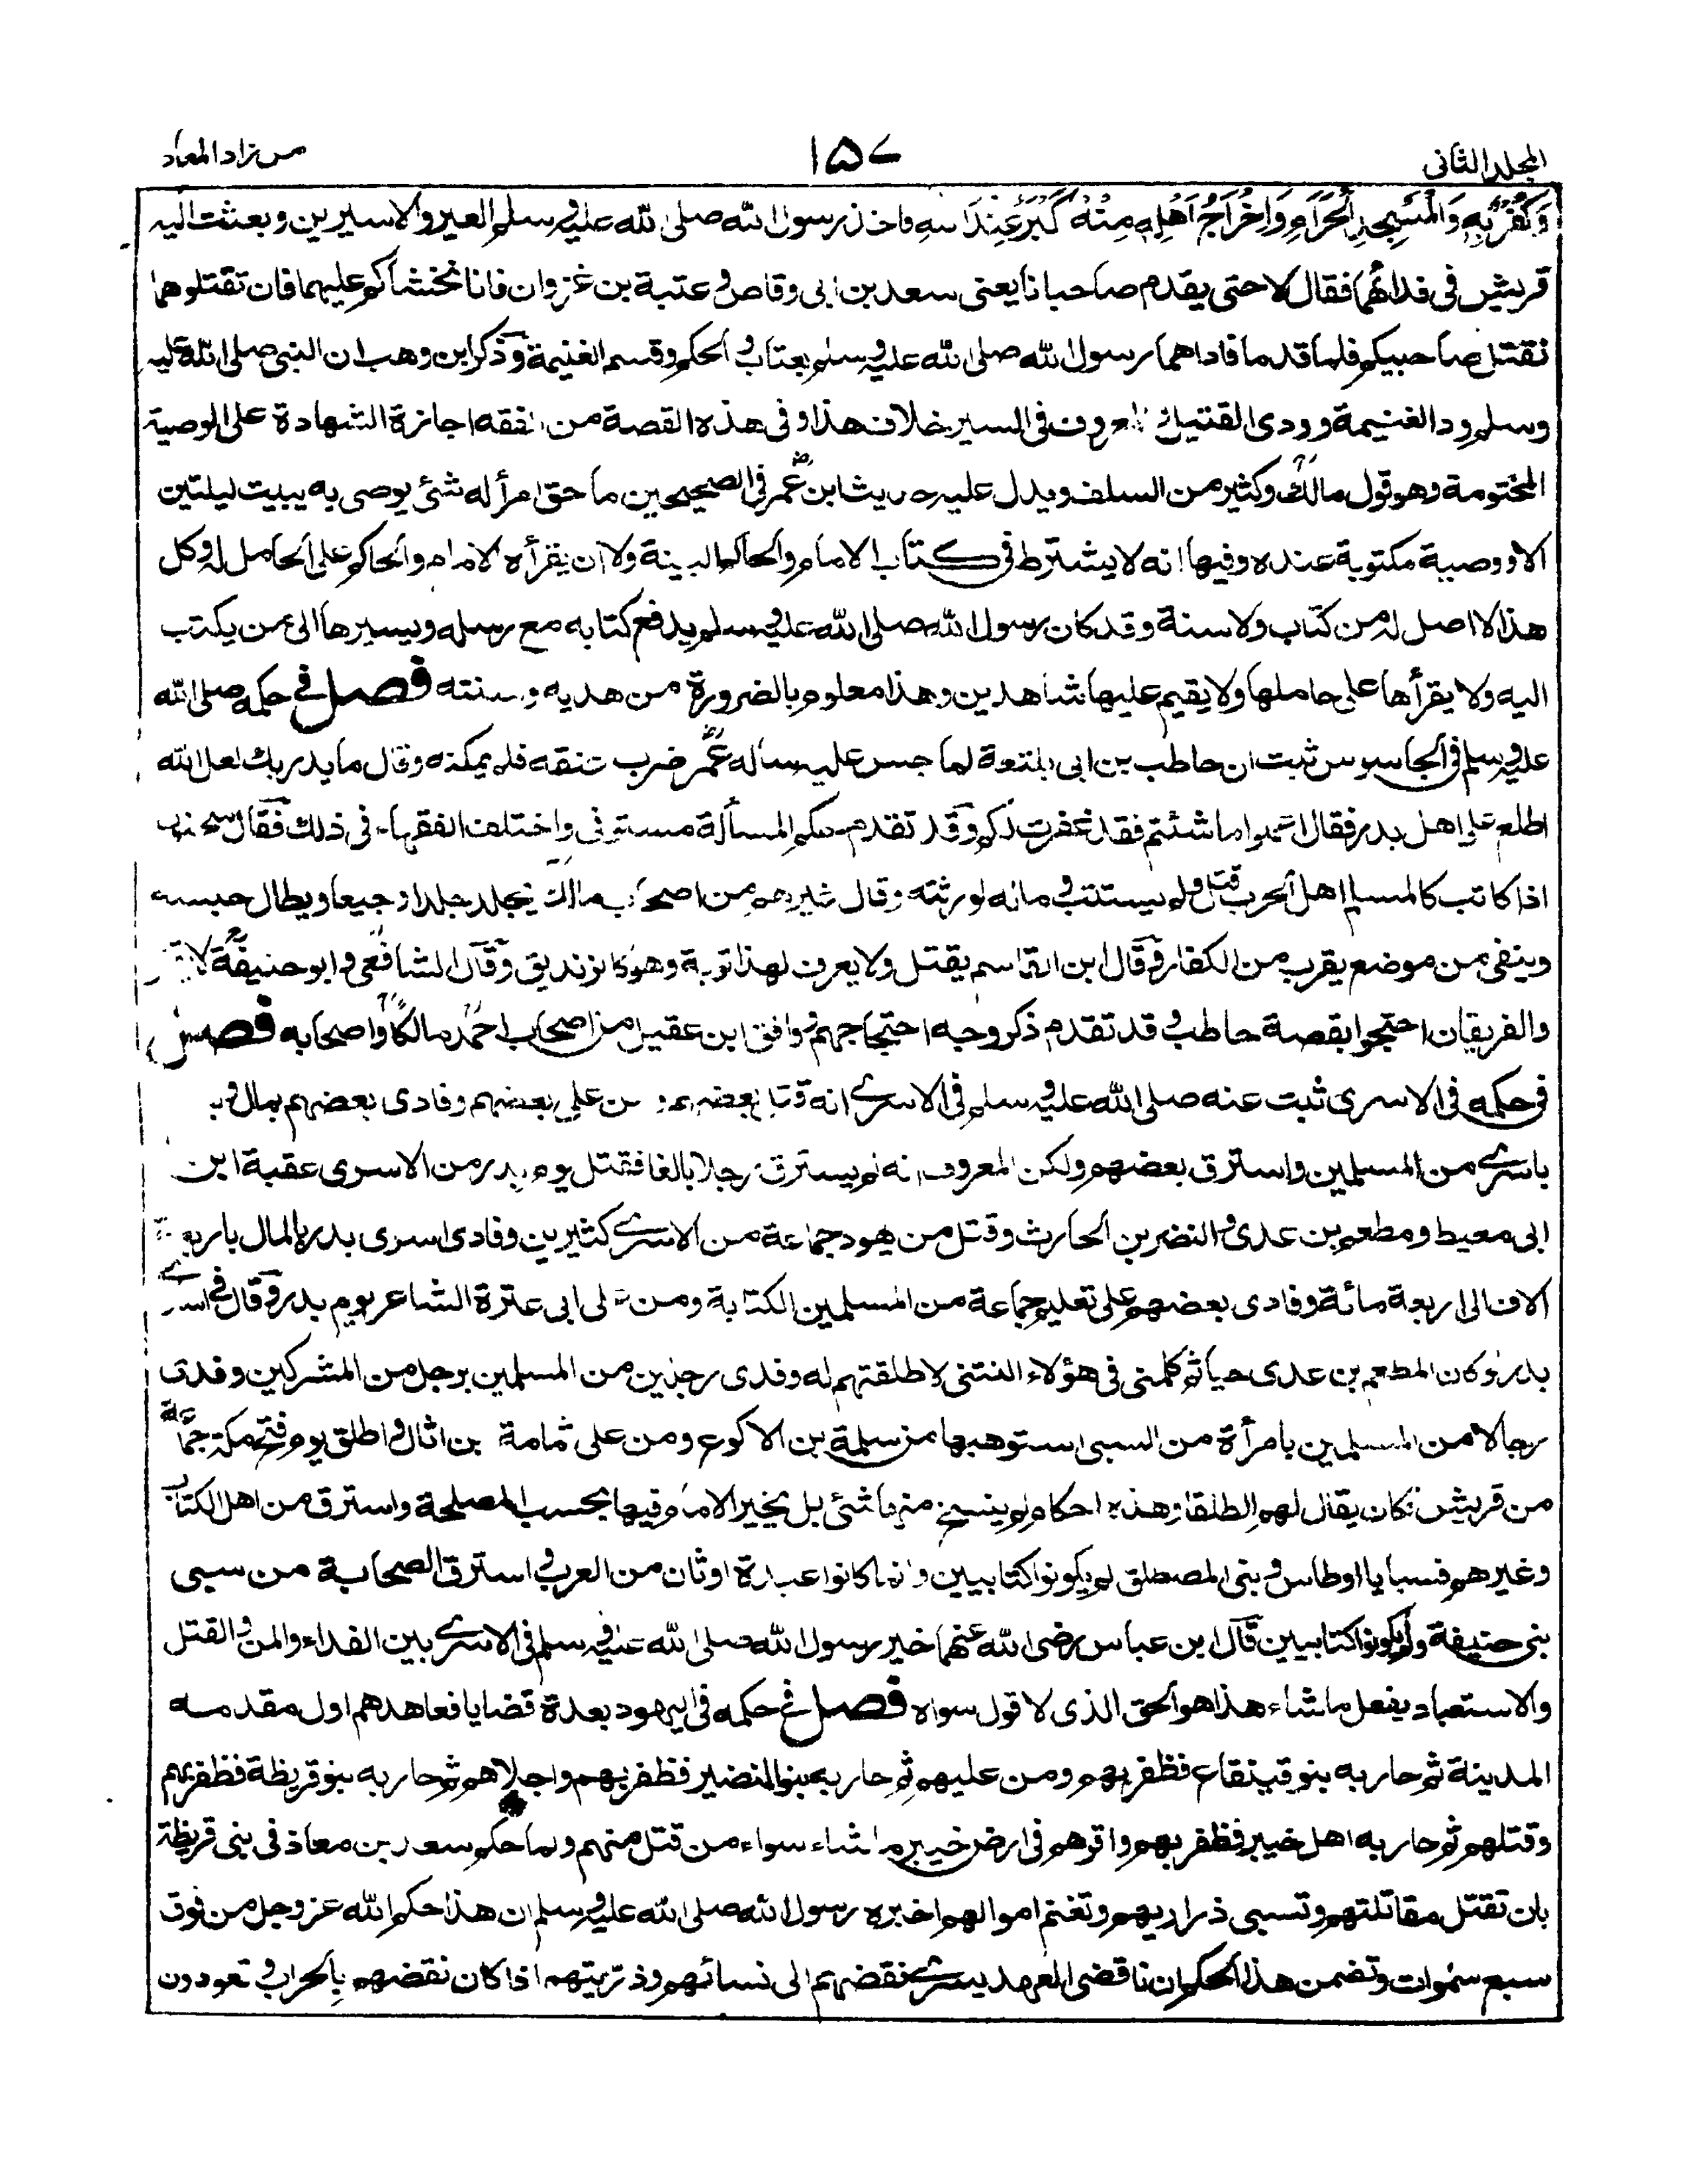 المجلد الثانى
١٥٧
من زاد المعاد
وَكُفْرٌ بِهِ وَالْمَسْجِدِ الْحَرَامِ وَاِخْرَاجُ اَهْلِهِ مِنْهُ اَكْبَرُ عِنْدَ اللهِ فاخذ رسول الله صلى الله عليه وسلم العير والاسيرين وبعثت اليه
قريش فى فدائهما فقال لا حتى يقدم صاحبانا يعنى سعد بن ابى وقاص وعتبة بن غزوان فانا نخشاكم عليهما فان تقتلوهما
نقتل صاحبيكم فلما قدما فاداهما رسول الله صلى الله عليه وسلم بعثاب والحكم وقسم الغنيمة وذكر ابن وهب ان النبى صلى الله عليه
وسلم رد الغنيمة وودى القتيل والمعروف فى السير خلاف هذا وفى هذه القصة من الفقه اجازة الشهادة على الوصية
المختومة وهو قول مالك وكثير من السلف ويدل عليه حديث ابن عمر فى الصحيحين ما حق امرأ له شئ يوصى به يبيت ليلتين
الا ووصية مكتوبة عنده وفيها انه لا يشترط فى كتاب الامام والحاكم البينة ولا ان يقرأه الامام والحاكم على الحامل له وكل
هذا لا اصل له من كتاب ولا سنة وقد كان رسول الله صلى الله عليه وسلم يدفع كتابه مع رسله ويسيرها الى من يكتب
اليه ولا يقرأها على حاملها ولا يقيم عليها شاهدين وهذا معلوم بالضرورة من هديه وسنته فصل فى حكمه صلى الله
عليه وسلم فى الجاسوس ثبت ان حاطب بن ابى بلتعة لما جس عليه سأله عمر ضرب عنقه فلم يمكنه وقال ما يدريك لعل الله
اطلع على اهل بدر فقال اعملوا ما شئتم فقد غفرت لكم وقد تقدم حكم المسألة مستوفى واختلف الفقهاء فى ذلك فقال سحنون
اذا كاتب كالمسلم اهل الحرب قتل ولم يستتب وماله لورثته وقال غيره من اصحاب مالك يجلد جلدا وجيعا ويطال حبسه
وينفى من موضع يقرب من الكفار وقال ابن القاسم يقتل ولا يعرف لهذا توبة وهو كالزنديق وقال الشافعى وابو حنيفة لا
والفريقان احتجوا بقصة حاطب وقد تقدم ذكر وجه احتجاجهم ووافق ابن عقيل من اصحاب احمد مالكا واصحابه فصل
فى حكمه فى الاسرى ثبت عنه صلى الله عليه وسلم فى الاسرى انه قتل بعضهم ومن على بعضهم وفادى بعضهم بمال و
باسرى من المسلمين واسترق بعضهم ولكن المعروف انه لم يسترق رجلا بالغا فقتل يوم بدر من الاسرى عقبة ابن
ابى معيط ومطعم بن عدى والنضر بن الحارث وقتل من يهود جماعة من الاسرى كثيرين وفادى اسرى بدر بالمال باربعة
الاف الى اربعة مائة وفادى بعضهم على تعليم جماعة من المسلمين الكتابة ومن على ابى عترة الشاعر يوم بدر وقال فى اسرى
بدر لو كان المطعم بن عدى حيا ثم كلمنى فى هؤلاء النتنى لاطلقتهم له وفدى رجلين من المسلمين برجل من المشركين وفدى
رجالا من المسلمين بامرأة من السبى استوهبها من سلمة بن الاكوع ومن على ثمامة بن اثال واطلق يوم فتح مكة جماعة
من قريش فكان يقال لهم الطلقاء وهذه احكام لم ينسخ منها شئ بل يخير الامام فيها بحسب المصلحة واسترق من اهل الكتاب
وغيرهم فسبايا اوطاس وبنى المصطلق لم يكونوا كتابيين وانما كانوا عبدة اوثان من العرب واسترق الصحابة من سبى
بنى حنيفة ولم يكونوا كتابيين قال ابن عباس رضى الله عنهما خير رسول الله صلى الله عليه وسلم فى الاسرى بين الفداء والمن والقتل
والاستعباد يفعل ما شاء هذا هو الحق الذى لا قول سواه فصل فى حكمه فى اليهود بعدة قضايا فعاهدهم اول مقدمه
المدينة ثم حاربه بنو قينقاع فظفر بهم ومن عليهم ثم حاربه بنو النضير فظفر بهم واجلاهم ثم حاربه بنو قريظة فظفر بهم
وقتلهم ثم حاربه اهل خيبر فظفر بهم واقرهم فى ارض خيبر ما شاء سواء من قتل منهم ولما حكم سعد بن معاذ فى بنى قريظة
بان تقتل مقاتلتهم وتسبى ذراريهم وتغنم اموالهم اخبره رسول الله صلى الله عليه وسلم ان هذا حكم الله عز وجل من فوق
سبع سموات وتضمن هذا الحكم ان ناقضى العهد يسرى نقضهم الى نسائهم وذريتهم اذا كان نقضهم بالحراب وتعودون